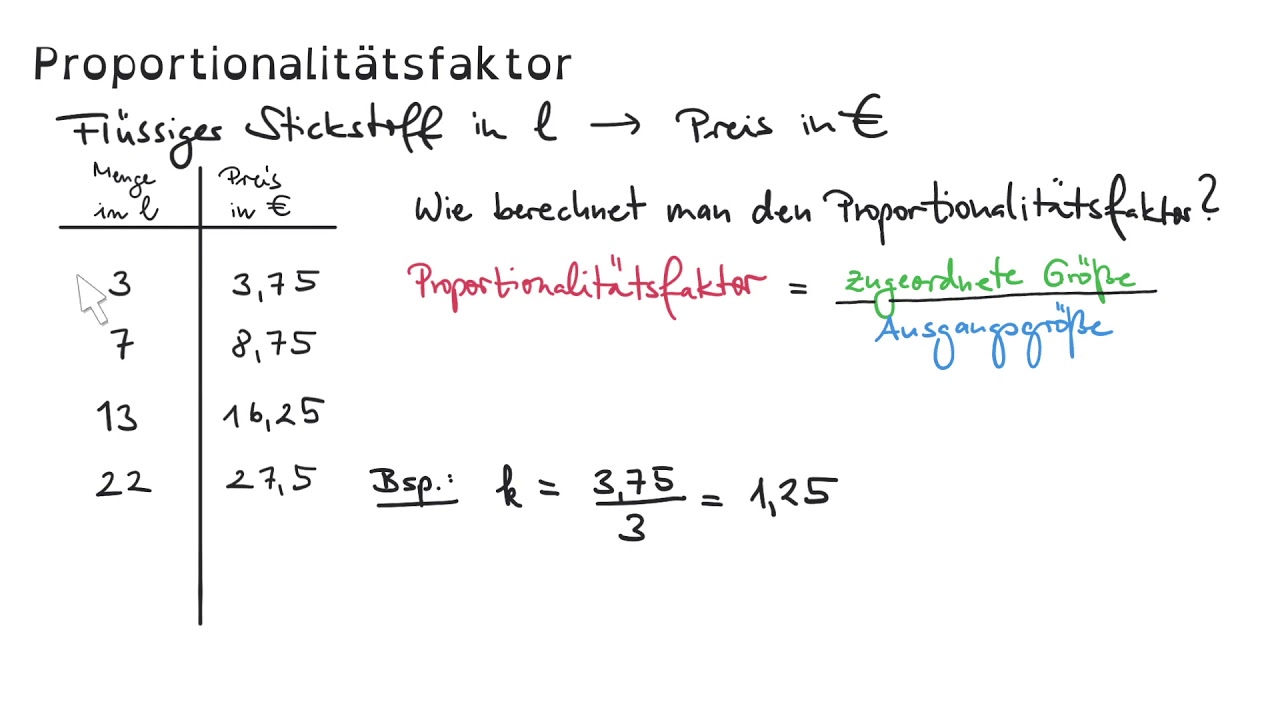 Proportionalitätsfaktor
Flüssiges Stickstoff in l → Preis in €
Menge in l | Preis in €
Wie berechnet man den Proportionalitätsfaktor?
3 | 3,75
Proportionalitätsfaktor = zugeordnete Größe / Ausgangsgröße
7 | 8,75
13 | 16,25
22 | 27,5
Bsp.: k = 3,75 / 3 = 1,25